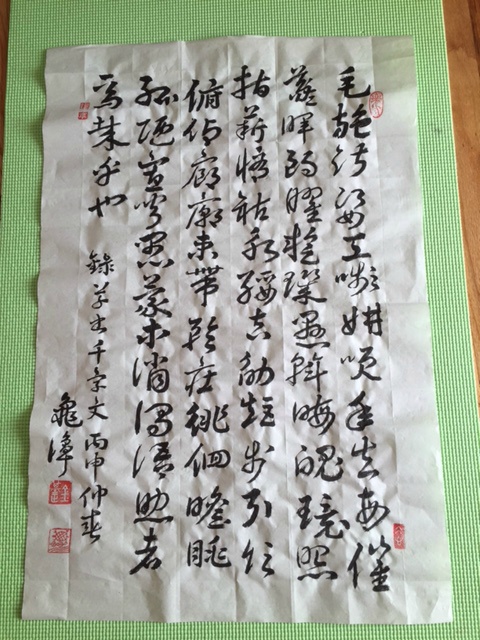 毛施淑姿工嚬妍笑年矢每催
羲暉朗曜璇璣懸斡晦魄環照
指薪修祜永綏吉劭矩步引領
俯仰廊廟束帶矜莊徘徊瞻眺
孤陋寡聞愚蒙等誚謂語助者
焉哉乎也
錄草书千字文丙申仲春